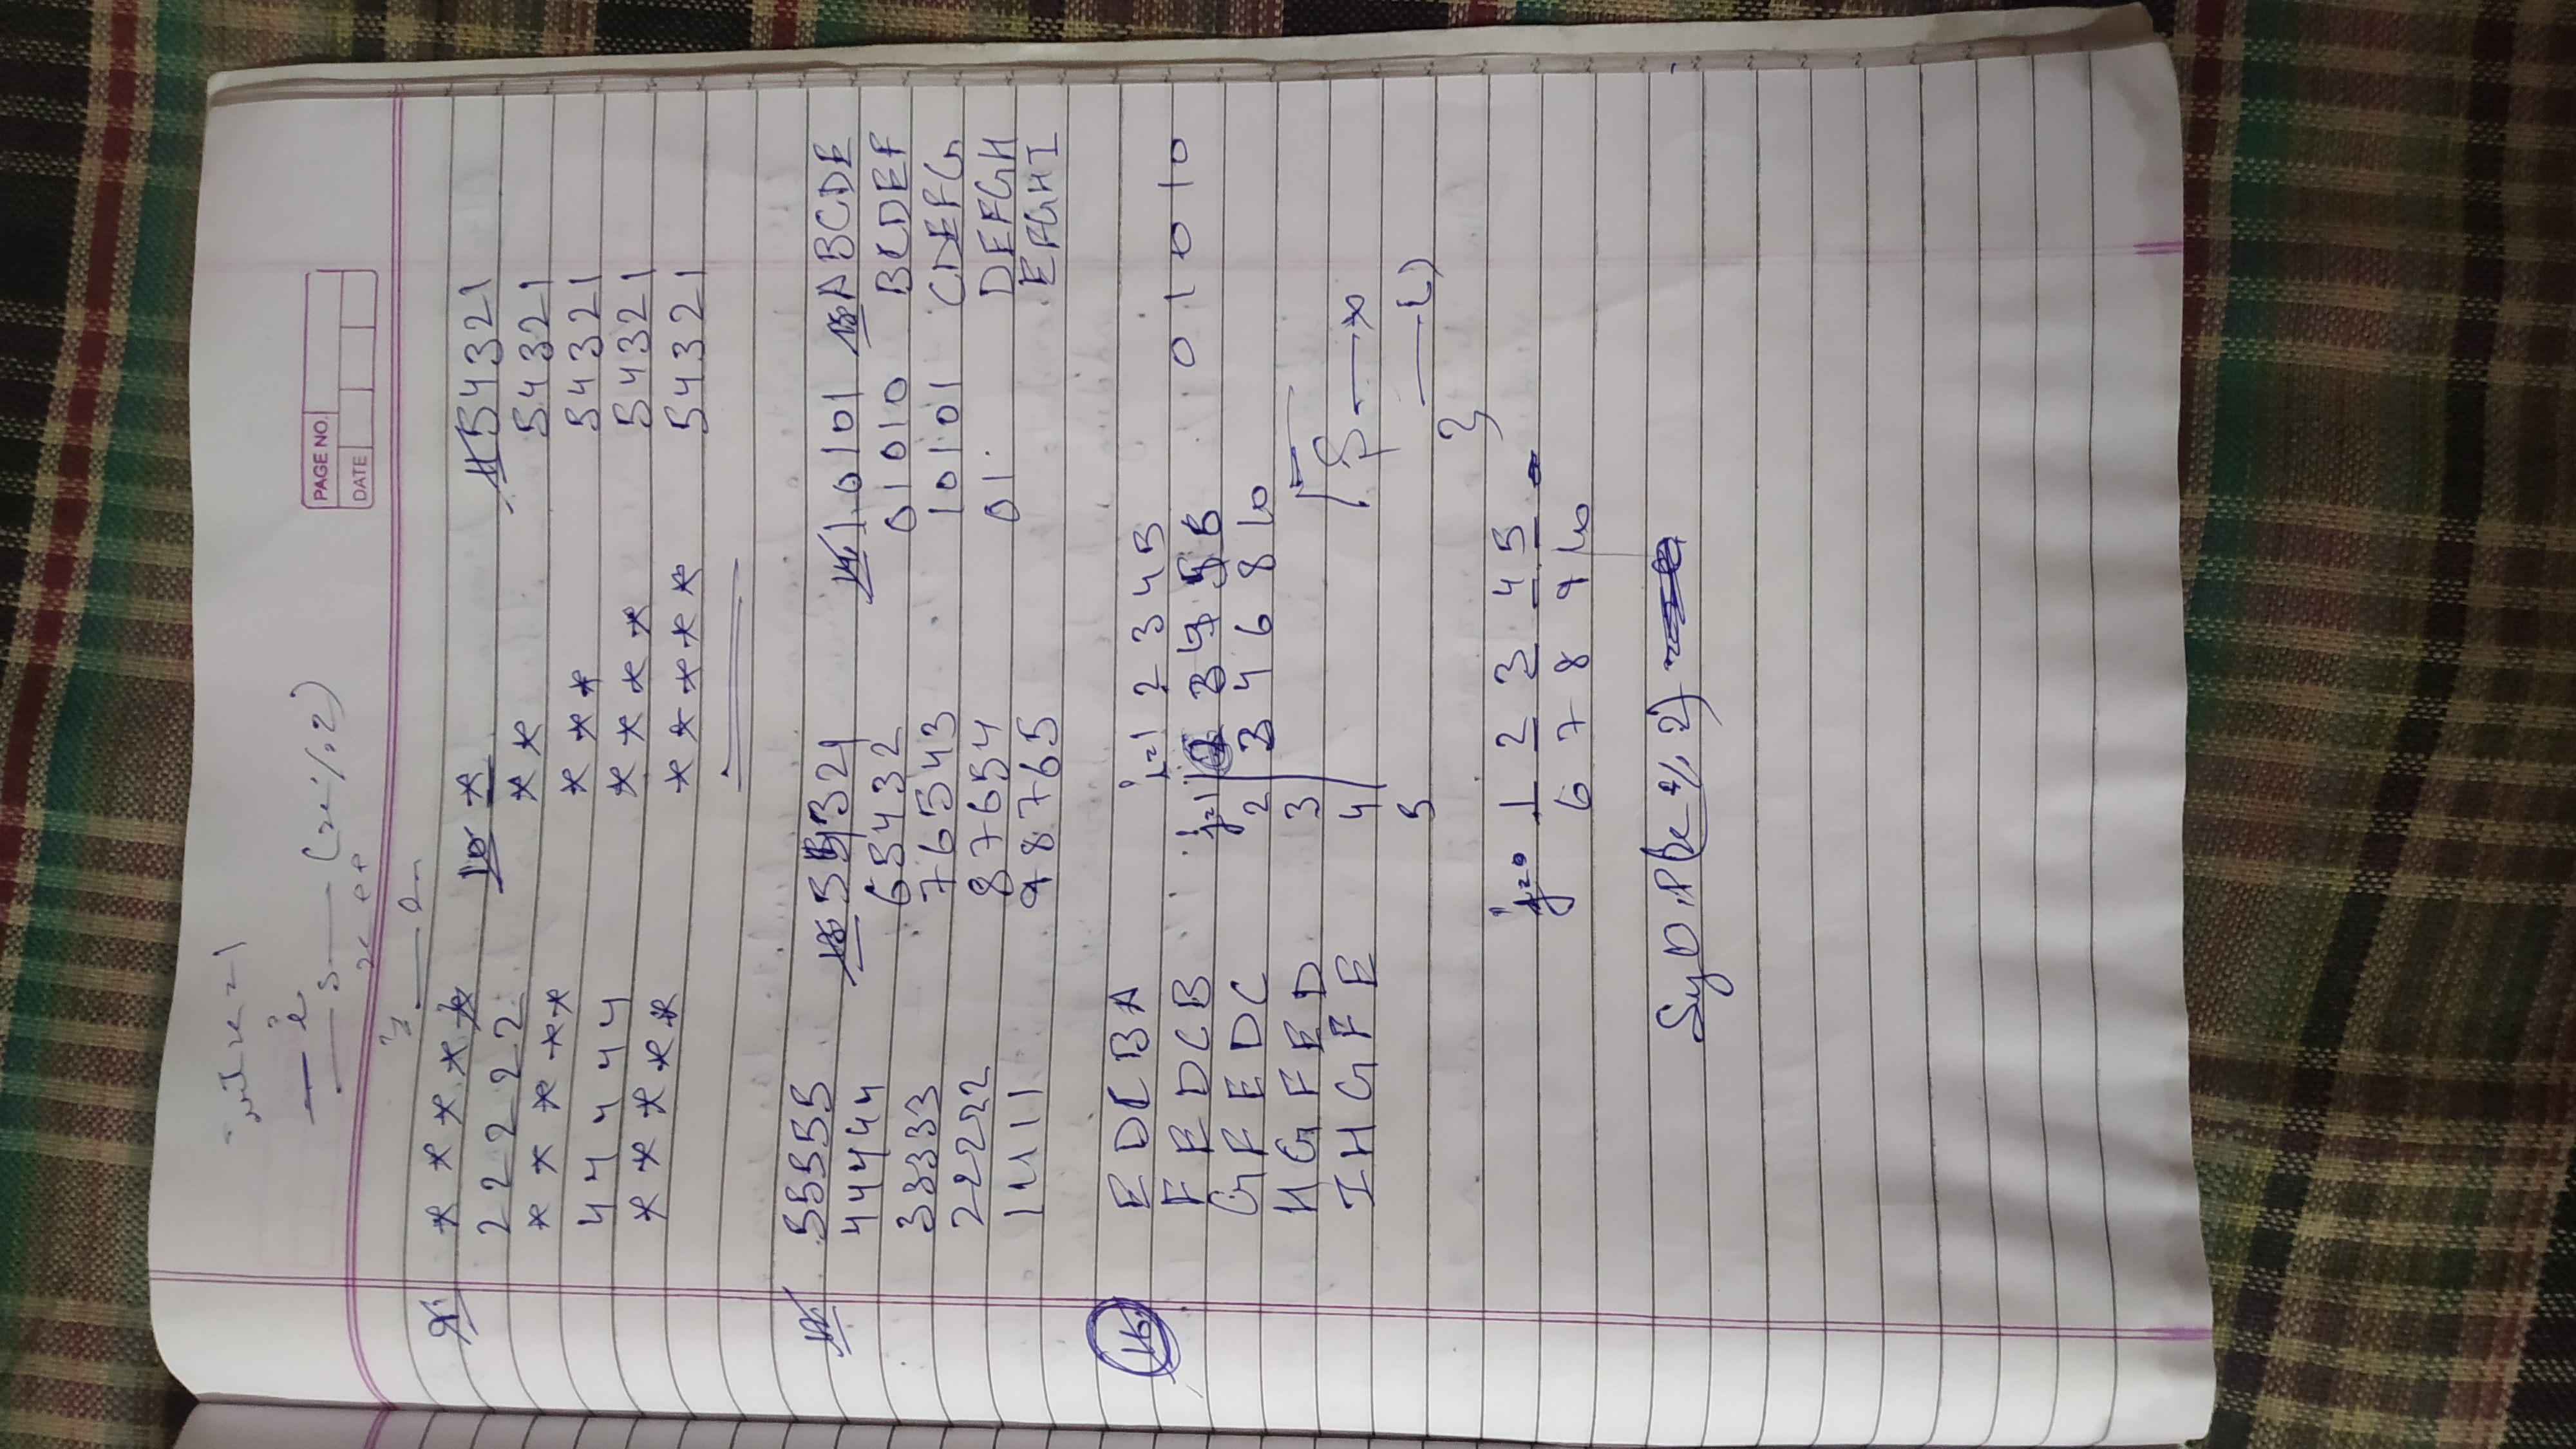 int x = 1
(x % 2)
PAGE NO.
DATE
9. * * * * *
2 2 2 2 2
* * * * *
4 4 4 4 4
* * * * *
10 *
* *
* * *
* * * *
* * * * *
11 54321
54321
54321
54321
54321
12. 55555
44444
33333
22222
11111
13 54321
65432
76543
87654
98765
14 10101
01010
10101
01
15 ABCDE
BCDEF
CDEFG
DEFGH
EFGHI
16. E D C B A
F E D C B
G F E D C
H G F E D
I H G F E
i=1 2 3 4 5
j=1 2 3 4 5 6
2 3 4 6 8 10
3
4
5
0 1 0 1 0
S
( )
}
j=0 1 2 3 4 5
6 7 8 9 10
SyO.P(x % 2)